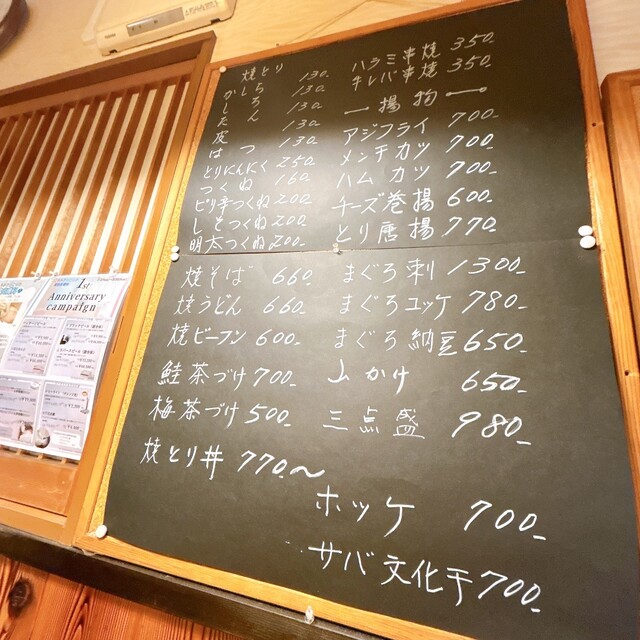 焼とり 130.
かしら 130.
しろ 130.
たん 130.
皮 130.
はつ
とりにんにく 250.
つくね 160.
ピリ辛つくね 200.
しそつくね 200.
明太つくね 200.
ハラミ串焼 350.
牛レバ串焼 350.
揚物
アジフライ 700.
メンチカツ 700.
ハムカツ 700.
チーズ巻揚 600.
とり唐揚 770.
焼そば 660.
焼うどん 660.
焼ビーフン 600.
鮭茶づけ 700.
梅茶づけ 500.
焼とり丼 770.〜
まぐろ刺 1300.
まぐろユッケ 780.
まぐろ納豆 650.
山かけ 650.
三点盛 980.
ホッケ 700.
サバ文化干 700.
1st
Anniversary
campaign